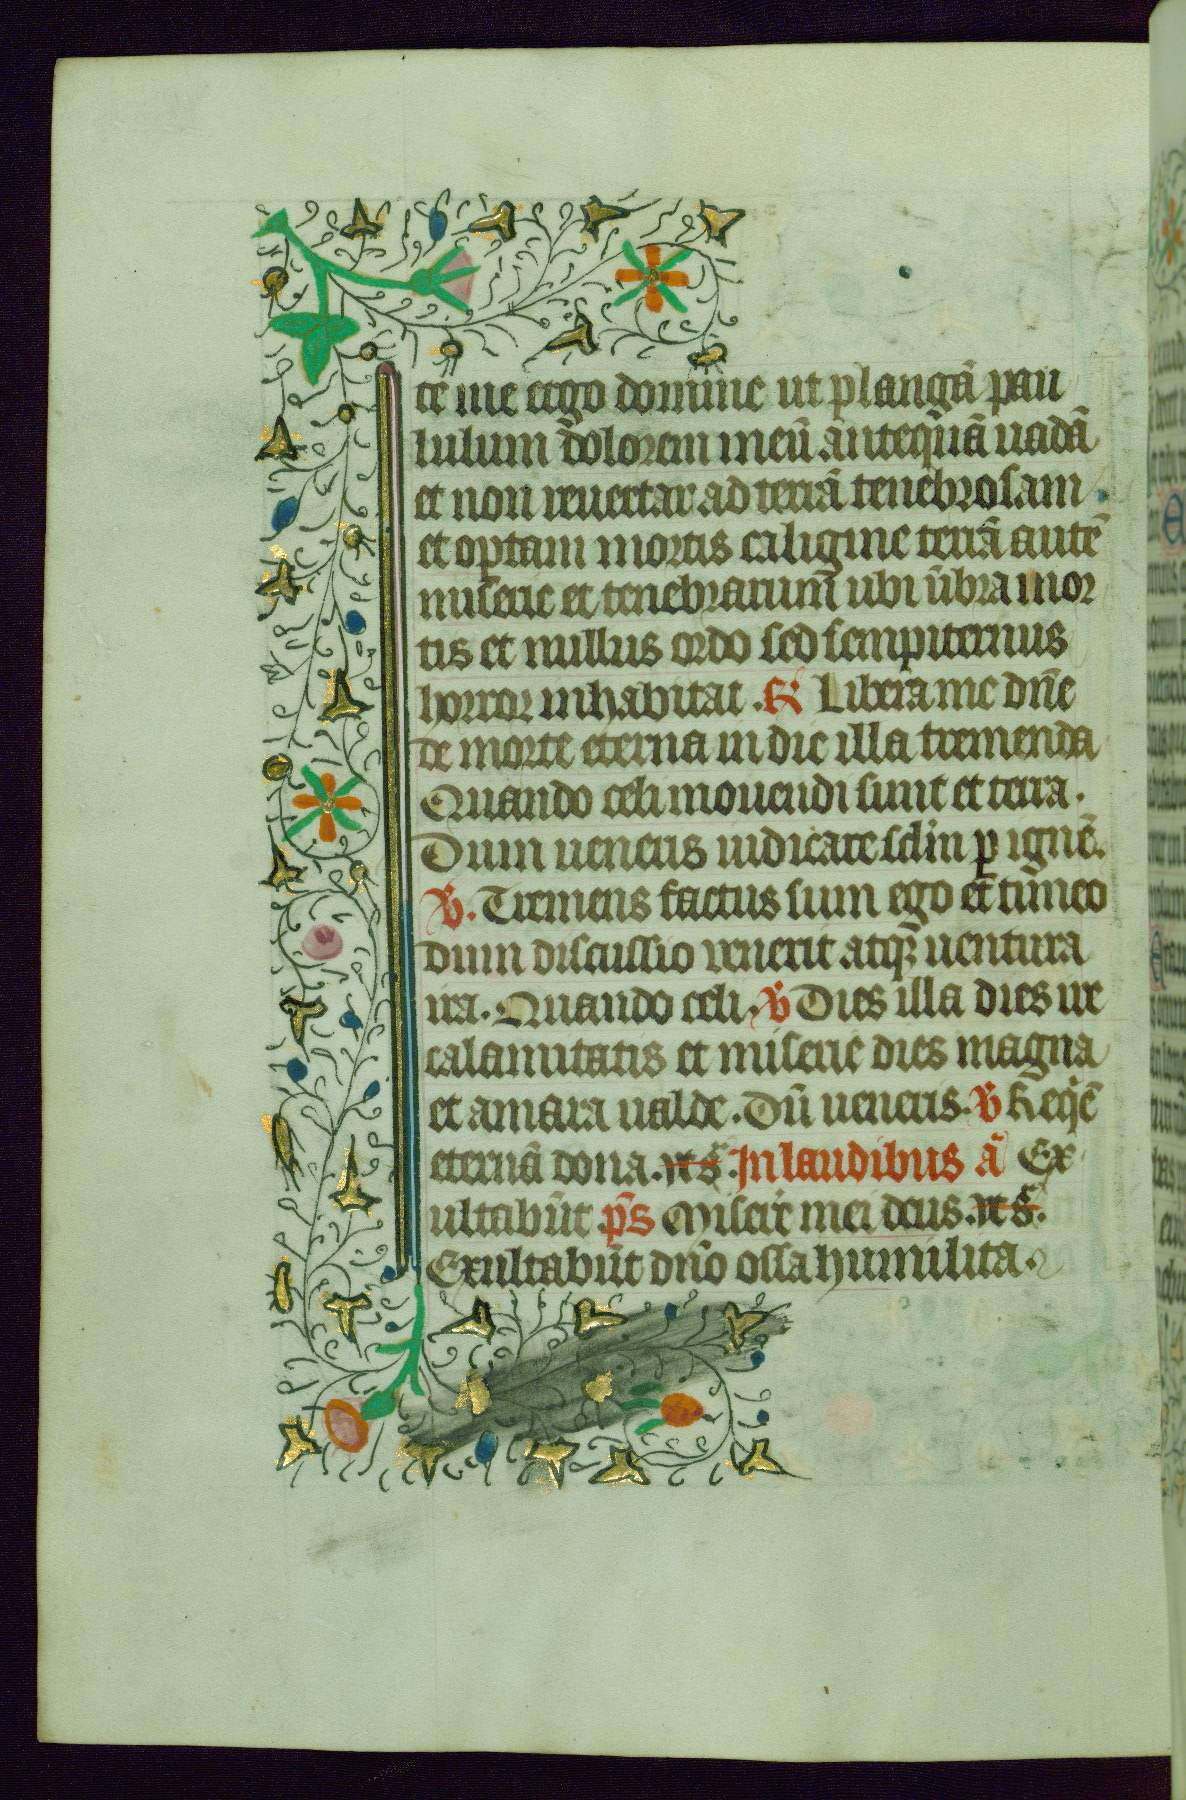 te me ergo domine ut plangā pau
lulum dolorem meū anteq̄uā uadā
et non reuertar ad terrā tenebrosam
et optam mortis caligine terrā autē
miserie et tenebrarum ubi ūbra mor
tis et nullus ordo sed sempiternus
horror inhabitat. R̸ Libera me dn̄e
de morte eterna in die illa tremenda
Quando celi mouendi sunt et terra.
Dum ueneris iudicare sclm̄ ꝑ ignē.
V̸. Tremens factus sum ego et timeo
dum discussio uenerit atq̄ꝫ uentura
ira. Quando celi. V̸ Dies illa dies ire
calamitatis et miserie dies magna
et amara ualde. Dū ueneris. V̸ Req̄ē
eternā dona. In laudibus ā Ex
ultabūt p̄s Miserē mei deus.
Exultabūt dn̄o ossa humilita.